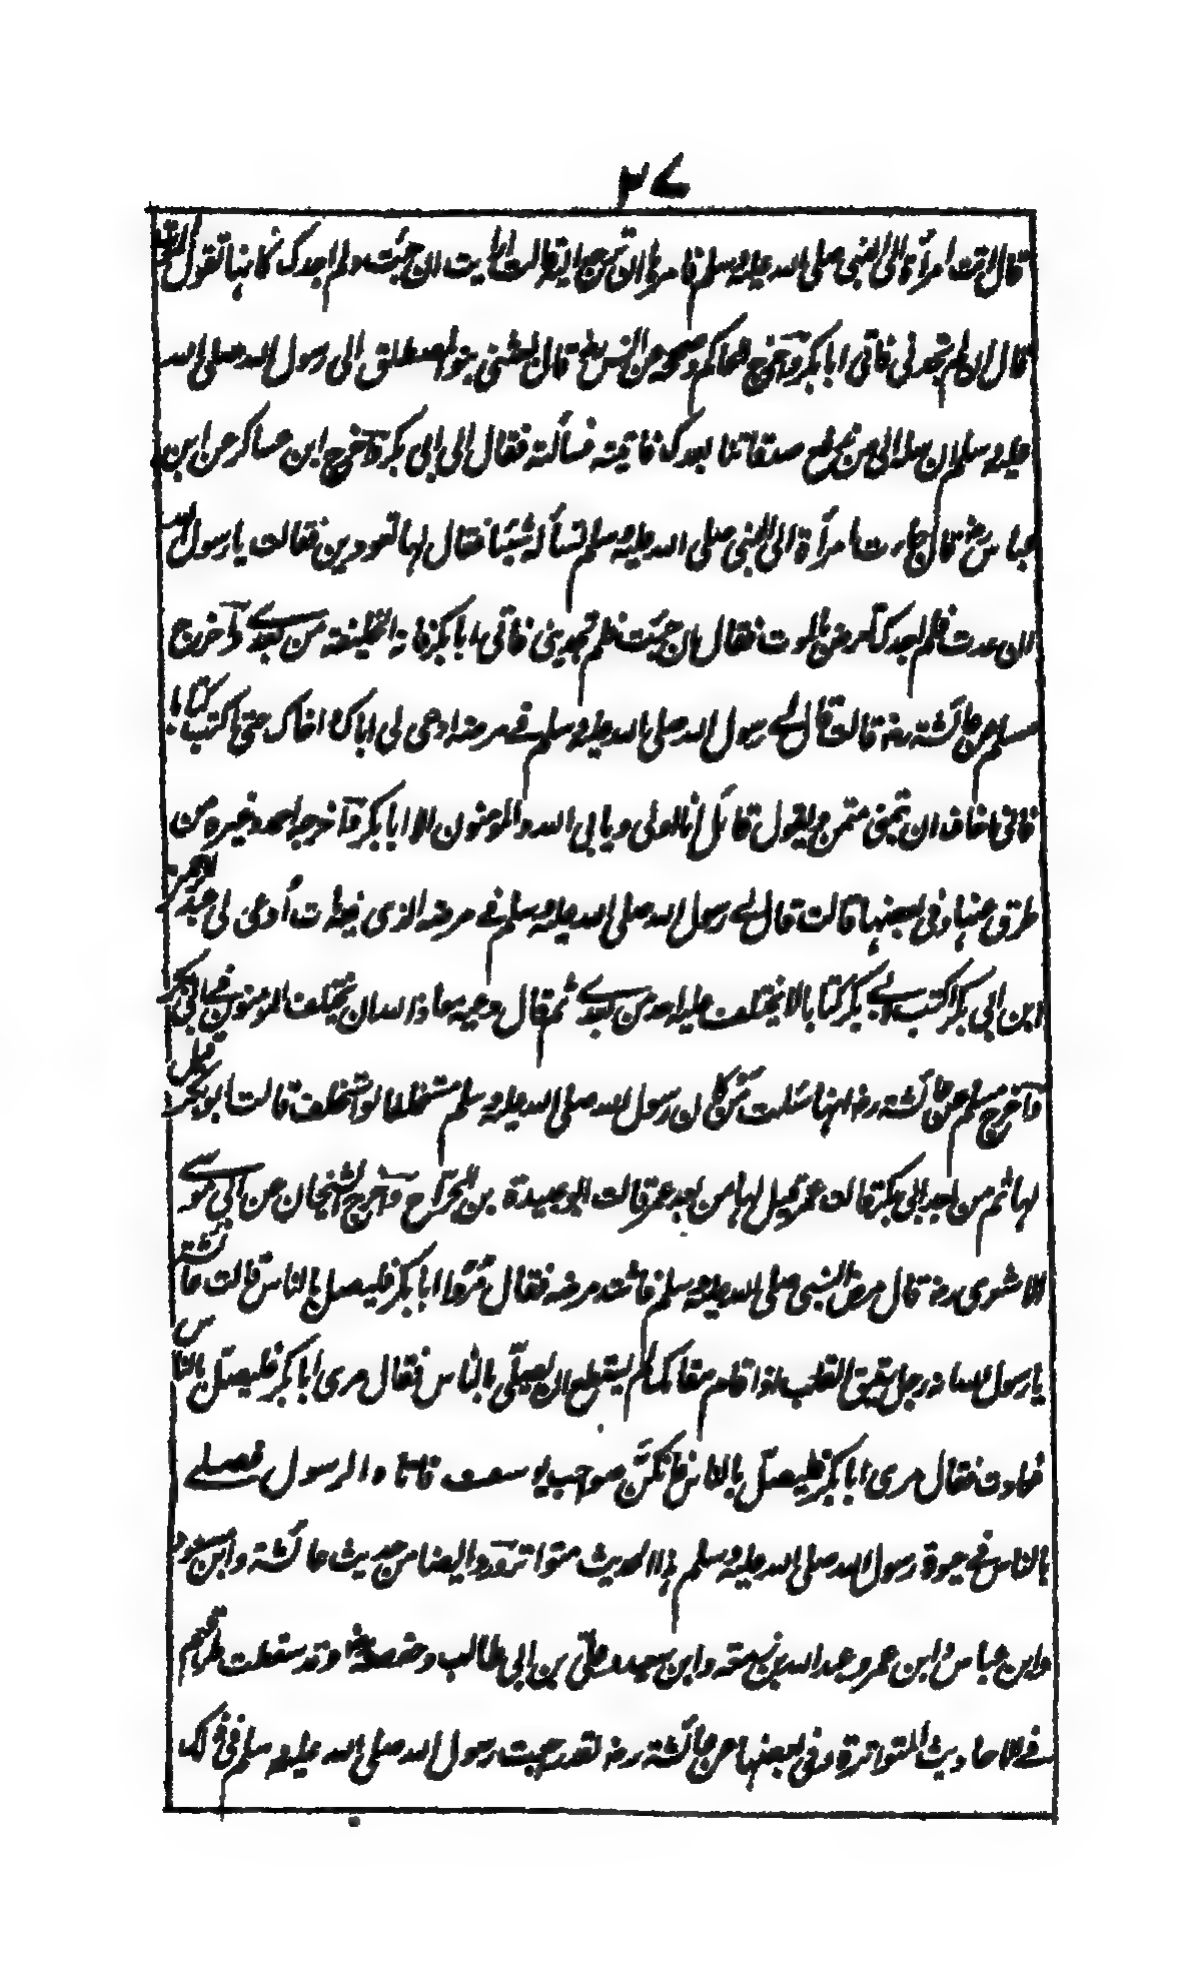 ٣٧
قال اتت امرأة الى النبي صلى الله عليه وسلم فامرها ان ترجع اليه قالت ارايت ان جئت ولم اجدك كانها تقول الموت
قال ان لم تجدني فاتي ابا بكر وآخرج الحاكم وصححه عن انس رض قال بعثني بنو المصطلق الى رسول الله صلى الله
عليه وسلم ان سله الى من ندفع صدقاتنا بعدك فاتيته فسألته فقال الى ابى بكر وآخرج ابن عساكر عن ابن
عباس رض قال جاءت امرأة الى النبي صلى الله عليه وسلم تسأله شيئا فقال لها تعودين فقالت يا رسول الله
ان عدت فلم اجدك تعرض بالموت فقال ان جئت فلم تجديني فاتي ابا بكر فانه الخليفة من بعدے وآخرج
مسلم عن عائشة رض قالت قال لے رسول الله صلى الله عليه وسلم فے مرضه ادعى لى اباك واخاك حتى اكتب كتابا
فانى اخاف ان يتمنى متمن ويقول قائل انا اولى ويابى الله والمؤمنون الا ابا بكر وآخرجه احمد وغيره من
طرق عنها وفى بعضها قالت قال لے رسول الله صلى الله عليه وسلم فے مرضه الذى فيه مات أدعى لى عبد الرحمن
ابن ابى بكر اكتب لابے بكر كتابا لا يختلف عليه احد من بعدے ثم قال دعيه معاذ الله ان يختلف المؤمنون فى ابى بكر
وآخرج مسلم عن عائشة رض انها سئلت من كان رسول الله صلى الله عليه وسلم مستخلفا لو استخلف قالت ابو بكر قيل
لها ثم من بعد ابى بكر قالت عمر قيل لها من بعد عمر قالت ابو عبيدة بن الجراح وآخرج الشيخان عن ابى موسے
الاشعرى رض قال مرض النبى صلى الله عليه وسلم فاشتد مرضه فقال مُرُوا ابا بكر فليصل بالناس قالت عائشة
يا رسول الله انه رجل رقيق القلب اذا قام مقامك لم يستطع ان يصلّى بالناس فقال مرى ابا بكر فليصلّ بالناس
فعادت فقال مرى ابا بكر فليصلّ بالناس فانكنّ صواحب يوسف فاتاه الرسول فصلے
بالناس فے حيوة رسول الله صلى الله عليه وسلم هذا الحديث متواتر ورد ايضا من حديث عائشة وابن مسعود
وابن عباس وابن عمر وعبد الله بن زمعة وابن سعيد وعلىّ بن ابى طالب وحفصة رض وقد سقت طرقهم
فے الاحاديث المتواترة وفى بعضها عن عائشة رض لقد راجعت رسول الله صلى الله عليه وسلم فى ذلك